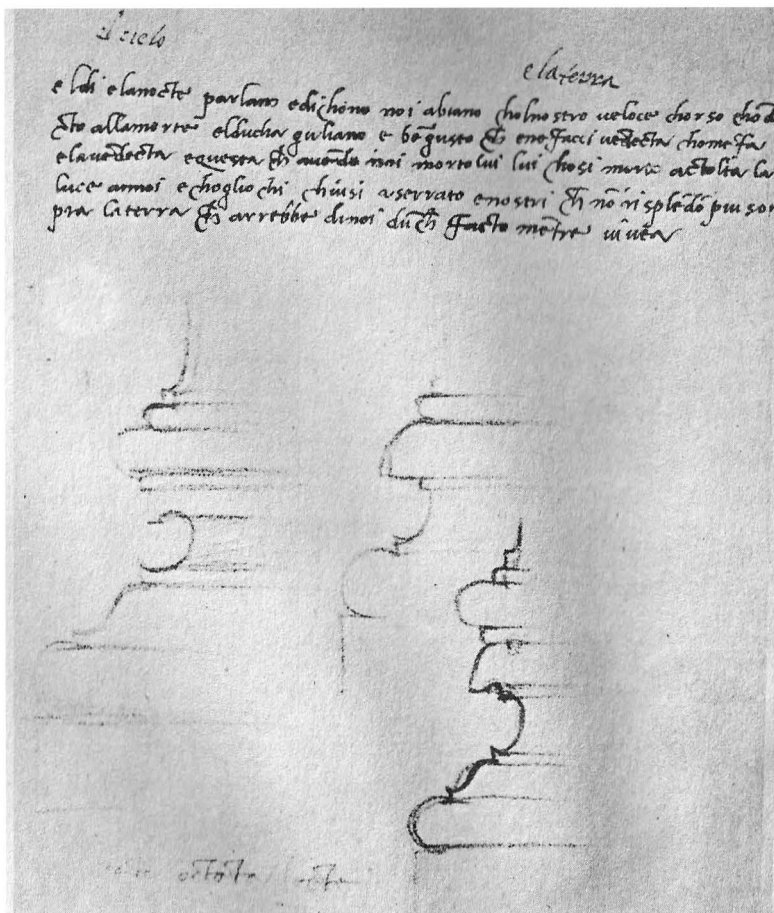 el cielo
e la terra
e ldi e lanocte parlano e dichono noi abiano cholnostro veloce chorso chondo
cto allamorte elducha guliano e bē gusto ch̄ ene facci vēdecta chome fa
e lavēdecta e questa ch̄ avēdo noi morto lui lui chosi morto a ctolta la
luce annoi e choglio chi chiusi a serrato e nostri ch̄ nō risplēdō piu so
pra la terra ch̄ arrebbe di noi dūch̄ facto mētre vivea